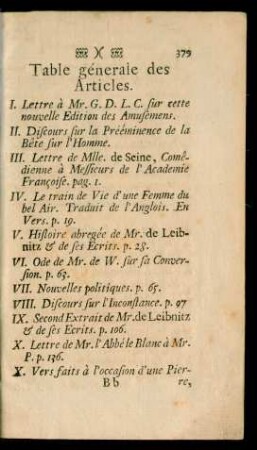 X 379
Table génerale des
Articles.
I. Lettre à Mr. G. D. L. C. sur cette
nouvelle Edition des Amusemens.
II. Discours sur la Prééminence de la
Bête sur l'Homme.
III. Lettre de Mlle. de Seine, Comê-
dienne à Messieurs de l'Academie
Françoise. pag. 1.
IV. Le train de Vie d'une Femme du
bel Air. Traduit de l'Anglois. En
Vers. p. 19.
V. Histoire abregée de Mr. de Leib-
nitz & de ses Ecrits. p. 28.
VI. Ode de Mr. de W. sur sa Conver-
sion. p. 63.
VII. Nouvelles politiques. p. 65.
VIII. Discours sur l'Inconstance. p. 97
IX. Second Extrait de Mr. de Leibnitz
& de ses Ecrits. p. 106.
X. Lettre de Mr. l'Abbé le Blanc à Mr.
P. p. 136.
X. Vers faits à l'occasion d'une Pier-
B b re,